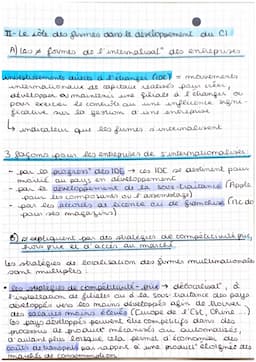 II - Le rôle des firmes dans le développement du CI
A) les ≠ formes de l'internatisat° des entreprises
investissements directs à l'étranger (IDE) = mouvements
internationaux de capitaux réalisés pour créer,
développer ou maintenir une filiale à l'étranger ou
pour exercer le contrôle ou une influence signi-
ficative sur la gestion d'une entreprise
↳ indicateur que les firmes s'internalisent
3 façons pour les entreprises de s'internationaliser :
- par la progress° des IDE → ces IDE se destinent pour
moitié au pays en développement
- par le développement de la sous-traitance (Apple
pour les composants ou l'assemblage)
- par les accords de licence ou de franchise (Mc do
pour ses magasins)
B) s'expliquent par des stratégies de compétitivité prix,
hors prix et d'accès au marché.
les stratégies de localisation des firmes multinationales
sont multiples :
- les stratégies de compétitivité-prix → délocalisat°, à
l'installation de filiales ou à la sous-traitance des pays
développés vers les moins développés afin de trouver
des salaires moins élevés (Europe de l'Est, Chine...)
les pays développés peuvent être compétitifs dans des
processus de product° mécanisés ou automatisés,
d'autant plus lorsque cela permet d'économiser des
coûts de transports par rapport à une product° éloignée des
marchés de consommation